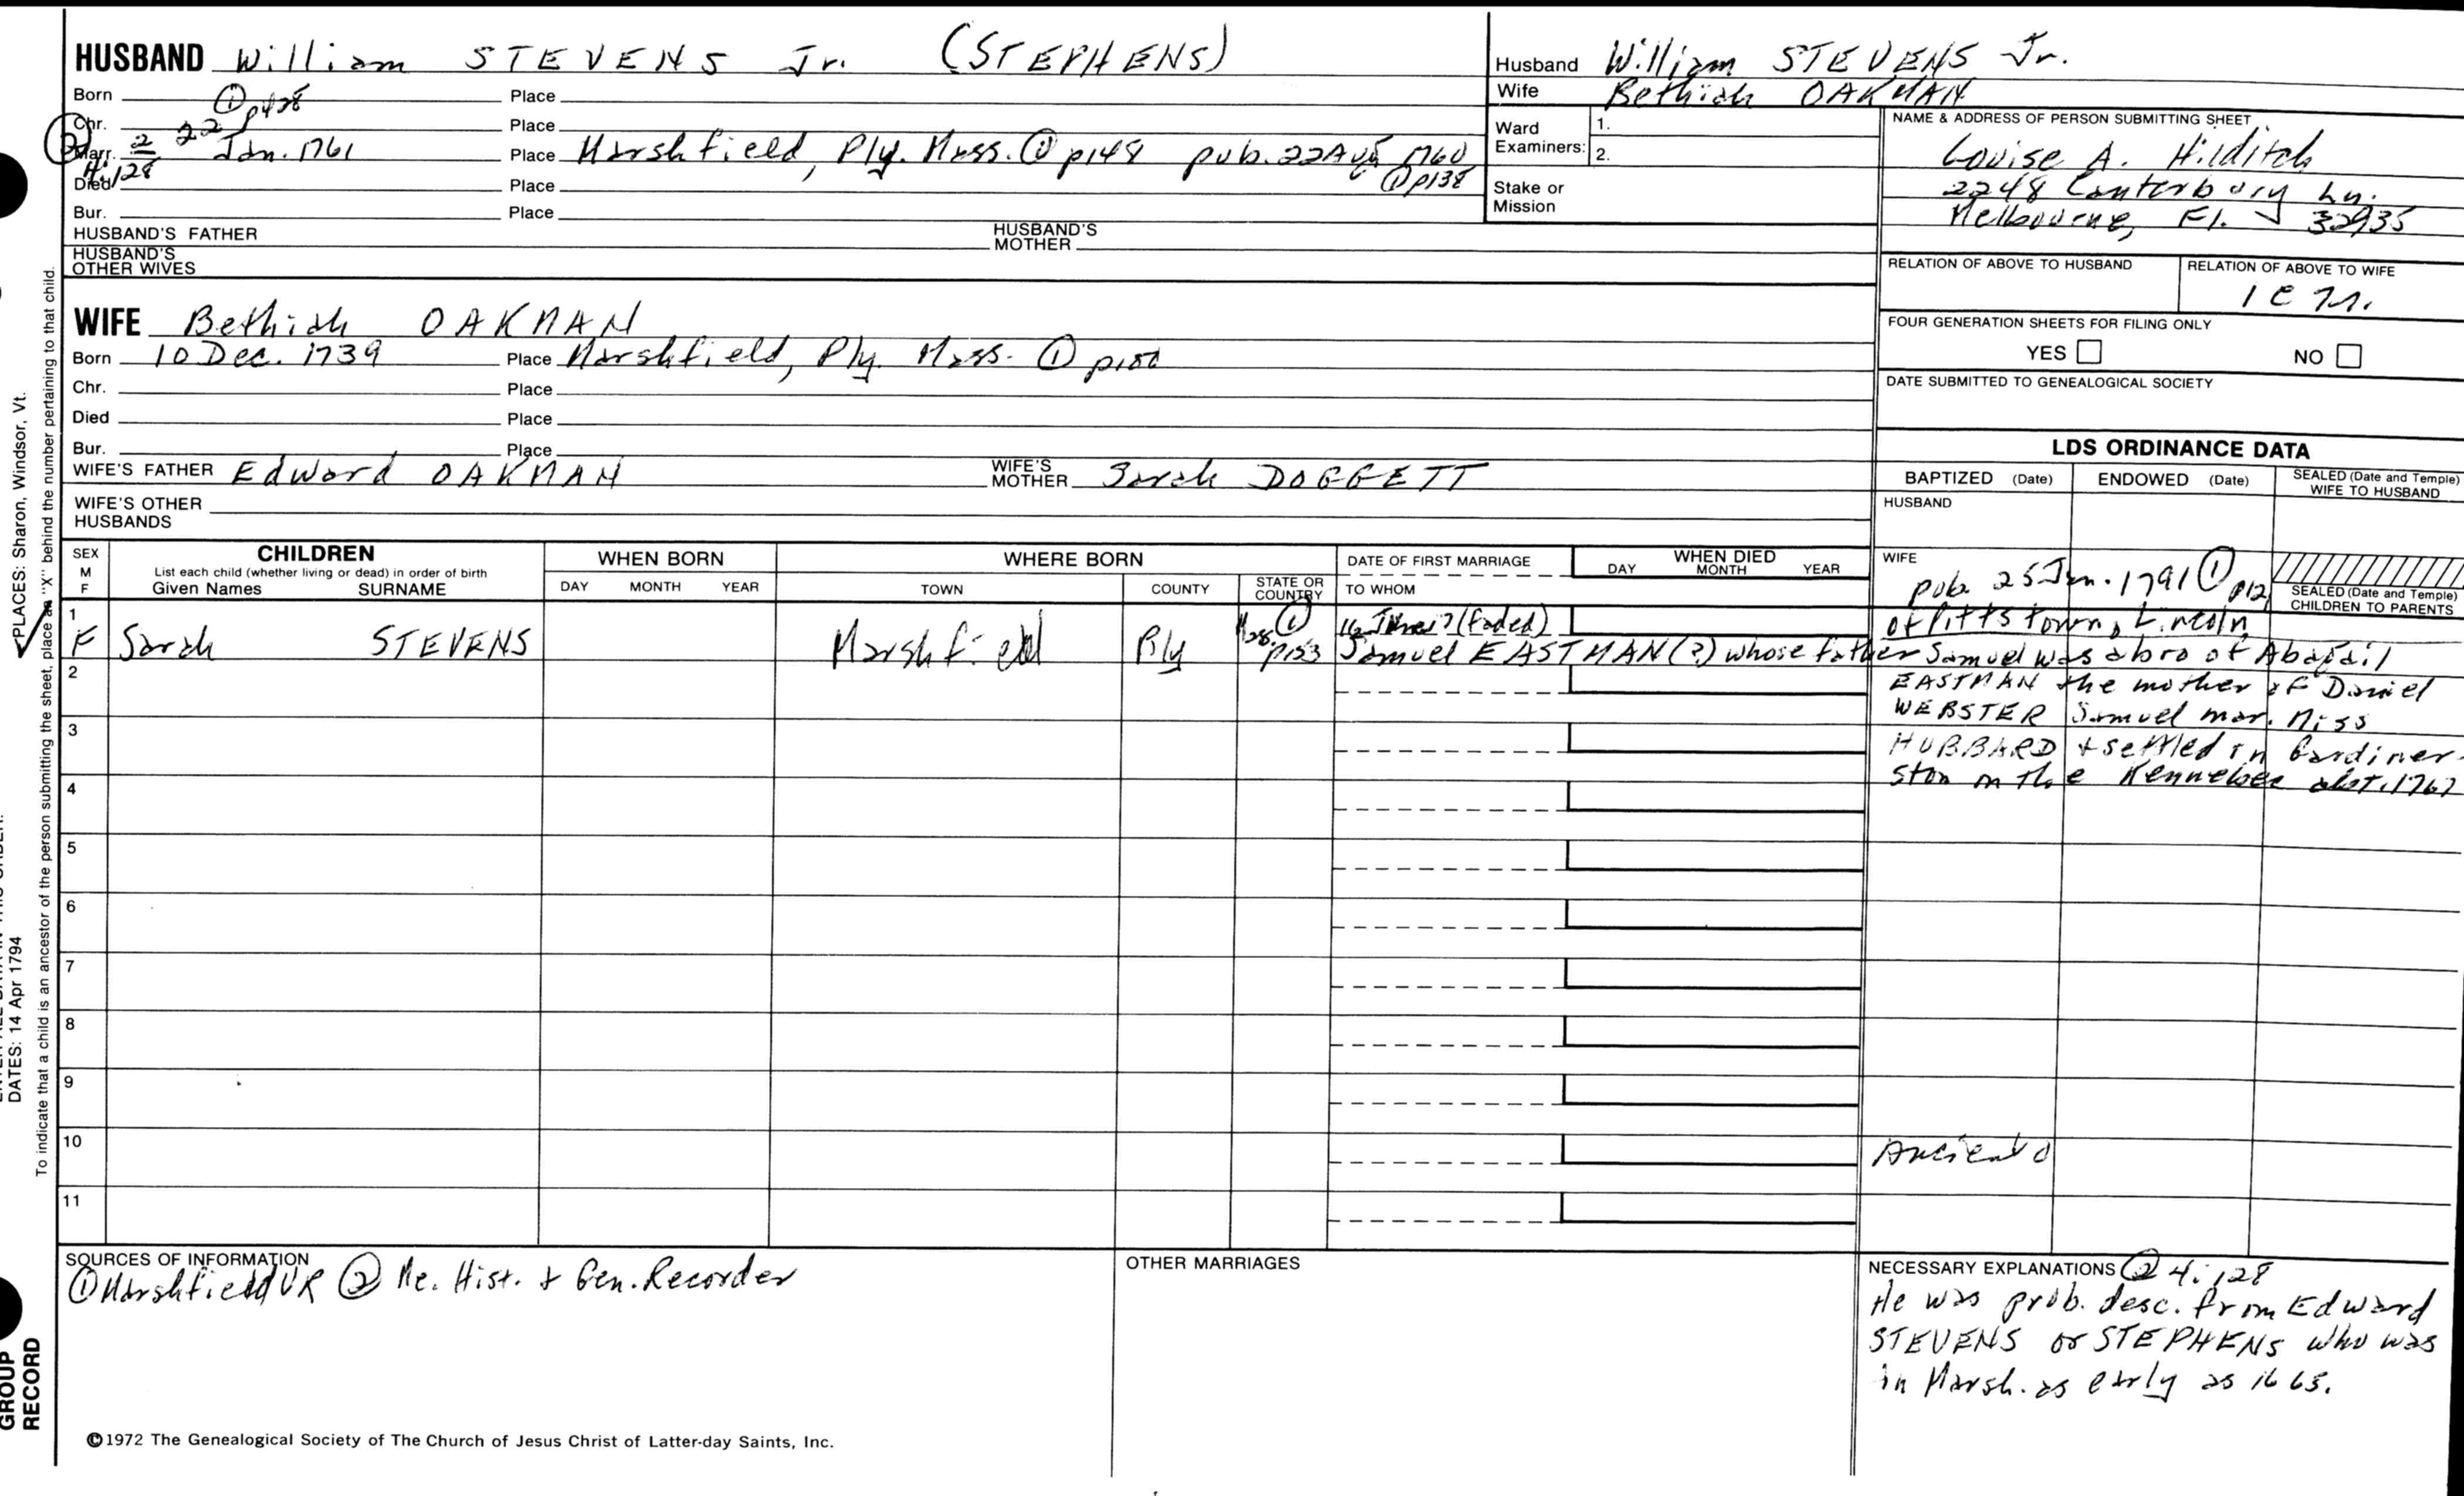 HUSBAND William STEVENS Jr. (STEPHENS)
Born ① p428 Place
Chr. Place
② Marr. 2 22 Jan. 1761 Place Marshfield, Ply. Mass. ① p148 pub. 22 Aug 1760
4:128 ① p138
Died Place
Bur. Place
HUSBAND'S FATHER HUSBAND'S MOTHER
HUSBAND'S OTHER WIVES
Husband William STEVENS Jr.
Wife Bethiah OAKMAN
Ward Examiners: 1.
2.
Stake or Mission
NAME & ADDRESS OF PERSON SUBMITTING SHEET
Louise A. Hilditch
2248 Canterbury Ln.
Melbourne, Fl. 32935
RELATION OF ABOVE TO HUSBAND RELATION OF ABOVE TO WIFE
1 C
FOUR GENERATION SHEETS FOR FILING ONLY
YES NO
DATE SUBMITTED TO GENEALOGICAL SOCIETY
WIFE Bethiah OAKMAN
Born 10 Dec. 1739 Place Marshfield, Ply. Mass. ①
Chr. Place
Died Place
Bur. Place
WIFE'S FATHER Edward OAKMAN WIFE'S MOTHER Sarah DOGGETT
WIFE'S OTHER HUSBANDS
LDS ORDINANCE DATA
BAPTIZED (Date) ENDOWED (Date) SEALED (Date and Temple) WIFE TO HUSBAND
HUSBAND
WIFE
SEALED (Date and Temple) CHILDREN TO PARENTS
SEX M F CHILDREN WHEN BORN WHERE BORN DATE OF FIRST MARRIAGE WHEN DIED
List each child (whether living or dead) in order of birth
Given Names SURNAME DAY MONTH YEAR TOWN COUNTY STATE OR COUNTRY TO WHOM DAY MONTH YEAR
pub. 25 Jan. 1791 ① p12
1 Mass. ① 16 (faded) of Pittstown, Lincoln
F Sarah STEVENS Marshfield Ply p153 Samuel EASTMAN (?) whose father Samuel was a bro of Abagail
2 EASTMAN the mother of Daniel
WEBSTER Samuel mar. Miss
3 HUBBARD + settled in Gardiner-
4 ston on the Kennebec abt. 1767
5
6
7
8
9
10 Ancient
11
SOURCES OF INFORMATION
① Marshfield VR ② Me. Hist. + Gen. Recorder
OTHER MARRIAGES
NECESSARY EXPLANATIONS ② 4:128
He was prob. desc. from Edward
STEVENS or STEPHENS who was
in Marsh. as early as 1665.
©1972 The Genealogical Society of The Church of Jesus Christ of Latter-day Saints, Inc.
PLACES: Sharon, Windsor, Vt.
To indicate that a child is an ancestor of the person submitting the sheet, place an "X" behind the number pertaining to that child.
DATES: 14 Apr 1794
GROUP
RECORD